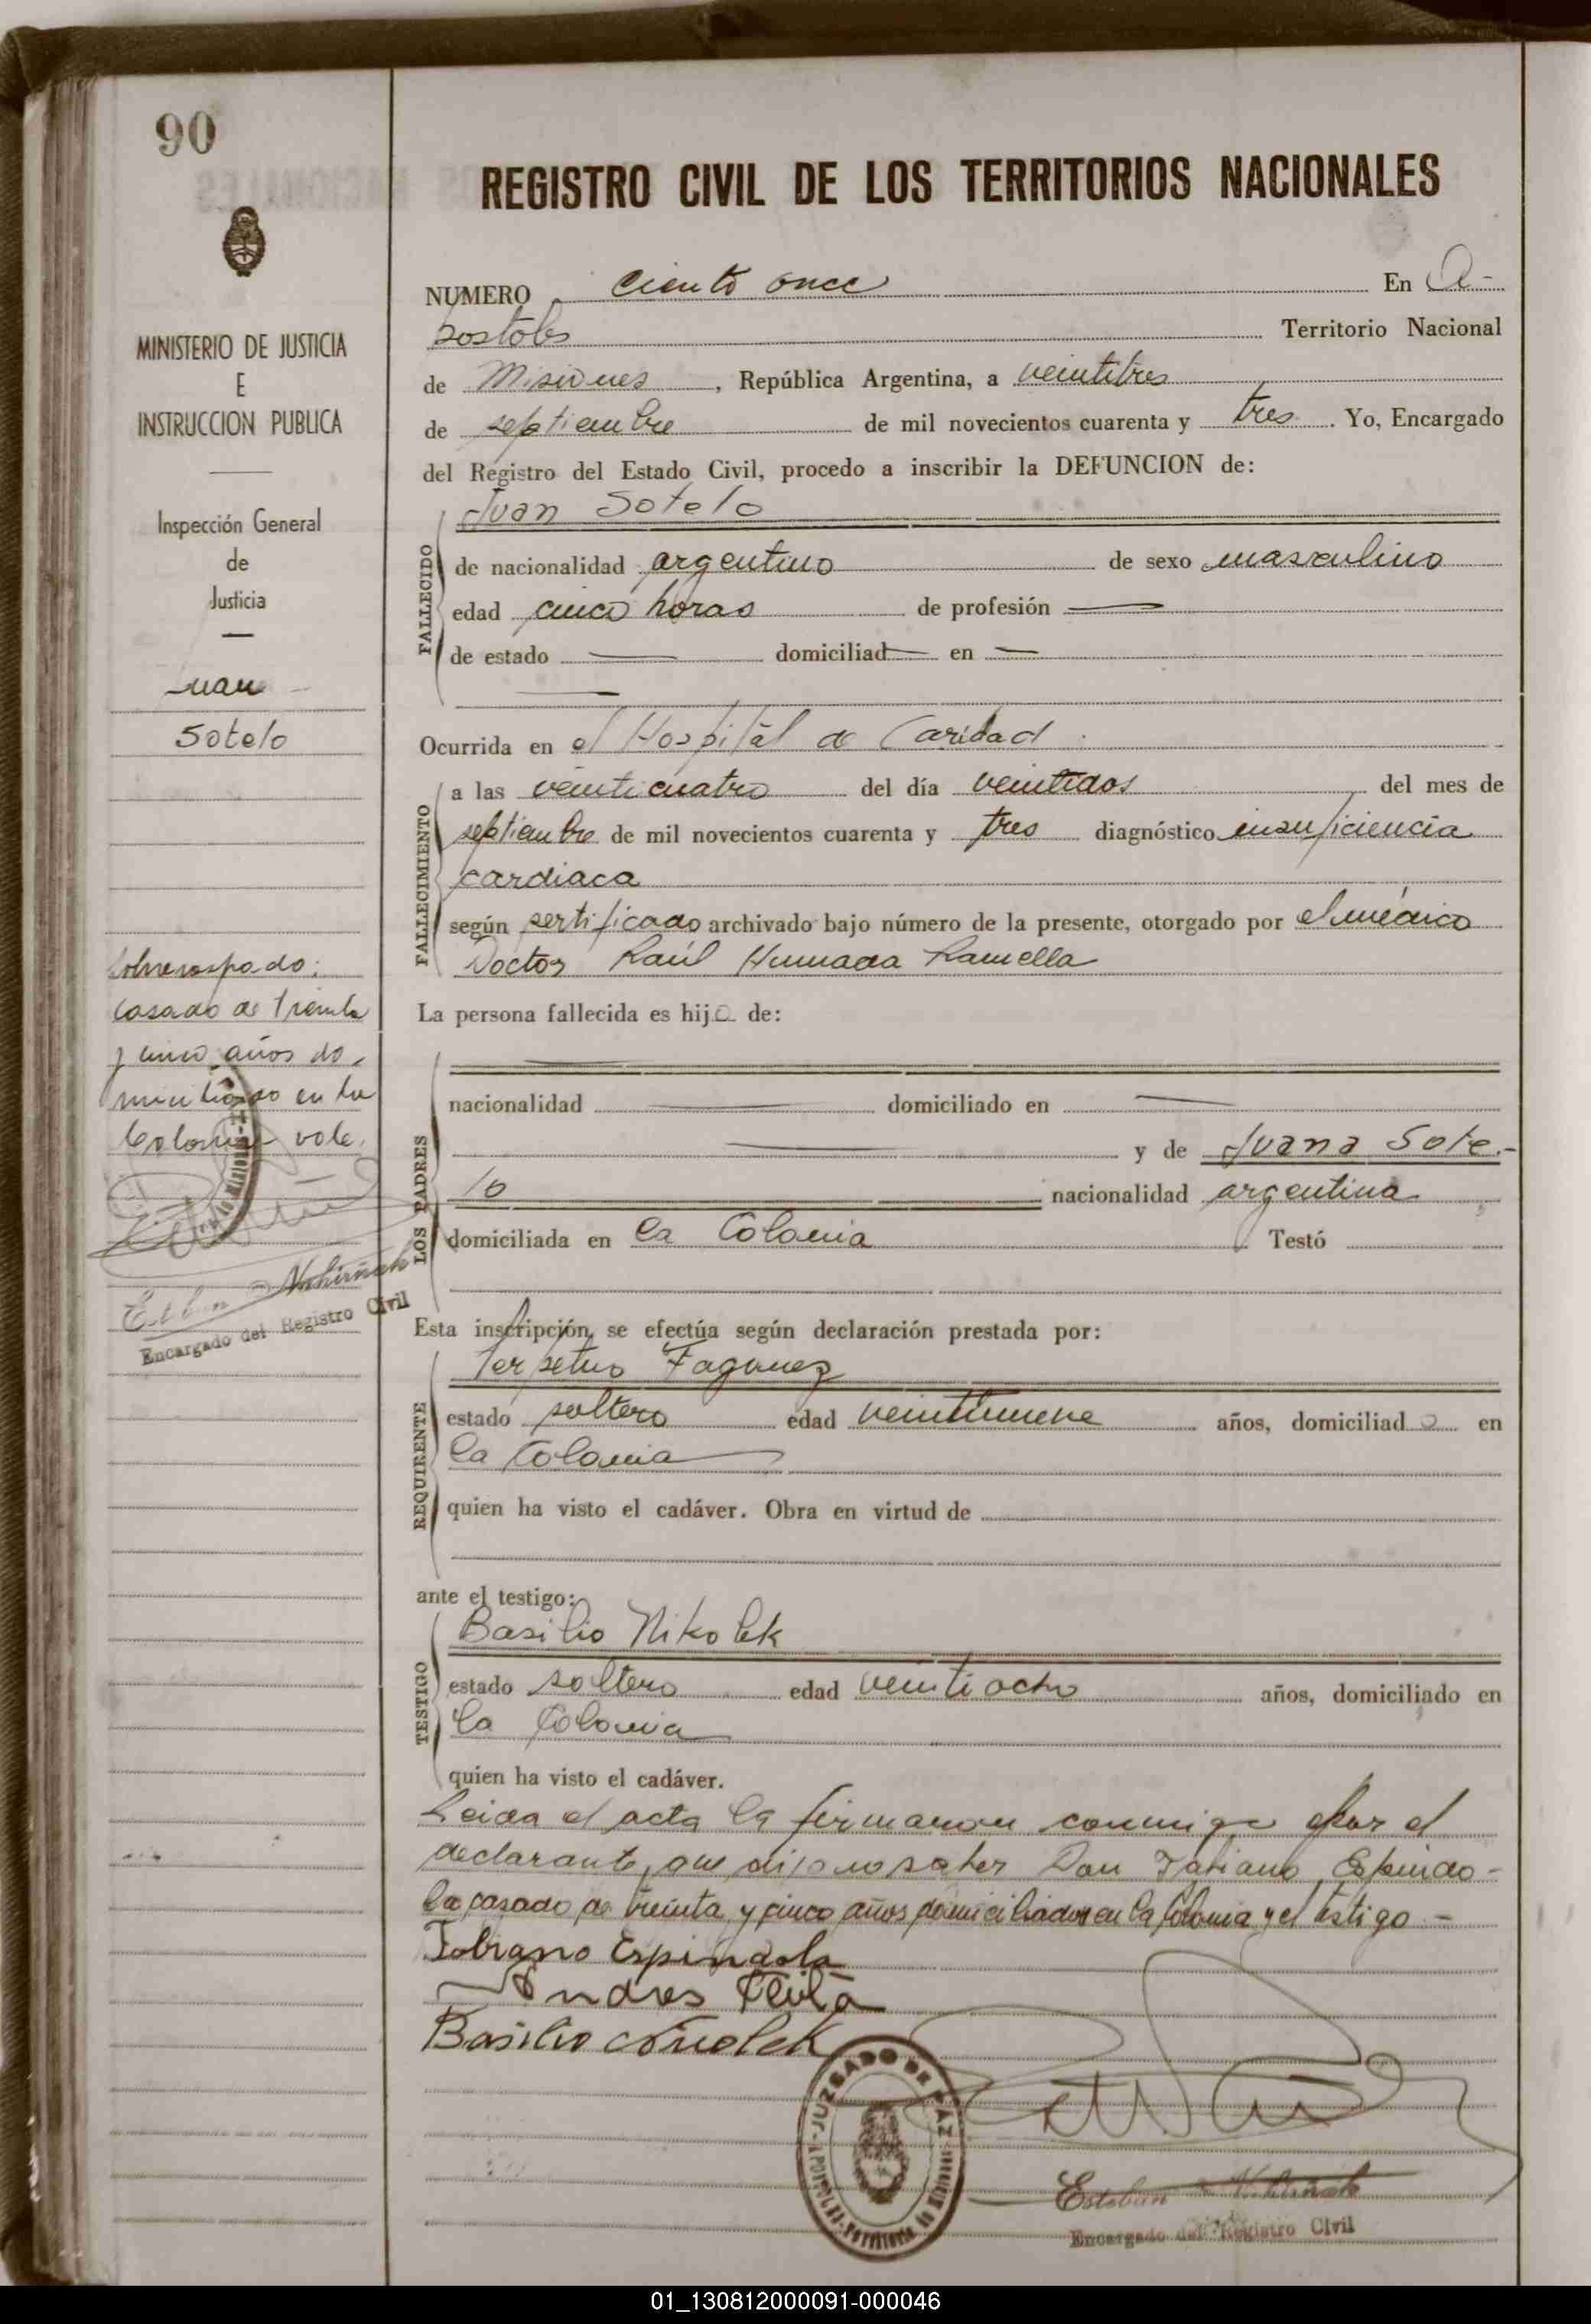 90
REGISTRO CIVIL DE LOS TERRITORIOS NACIONALES
MINISTERIO DE JUSTICIA
E
INSTRUCCION PUBLICA
Inspección General
de
Justicia
Juan
Sotelo
Sobreraspado:
casado de treinta
y cinco años do-
miciliado en la
Colonia vale.
Esteban
Encargado del Registro Civil
NUMERO ciento once En A-
postoles Territorio Nacional
de Misiones, República Argentina, a veintitres
de septiembre de mil novecientos cuarenta y tres. Yo, Encargado
del Registro del Estado Civil, procedo a inscribir la DEFUNCION de:
Juan Sotelo
FALLECIDO
de nacionalidad argentino de sexo masculino
edad cinco horas de profesión —
de estado — domiciliad — en —
Ocurrida en el Hospital de Caridad
FALLECIMIENTO
a las veinticuatro del día veintidos del mes de
septiembre de mil novecientos cuarenta y tres diagnóstico insuficiencia
cardiaca
según sertificado archivado bajo número de la presente, otorgado por el médico
Doctor Raúl Humada Ramella
La persona fallecida es hijo de:
LOS PADRES
nacionalidad — domiciliado en —
— y de Juana Sote-
lo nacionalidad argentina
domiciliada en la Colonia Testó
Esta inscripción, se efectúa según declaración prestada por:
Perpetuo
REQUIRENTE
estado soltero edad veintinueve años, domiciliado en
la Colonia
quien ha visto el cadáver. Obra en virtud de
ante el testigo:
Basilio Nikolek
TESTIGO
estado soltero edad veintiocho años, domiciliado en
la Colonia
quien ha visto el cadáver.
Leida el acta la firmaron conmigo por el
declarante, que dijo no saber Don Espindo-
la casado de treinta y cinco años domiciliados en la Colonia y el testigo -
Espindola
Andres
Basilio
JUZGADO DE PAZ
Esteban
Encargado del Registro Civil
01_130812000091-000046